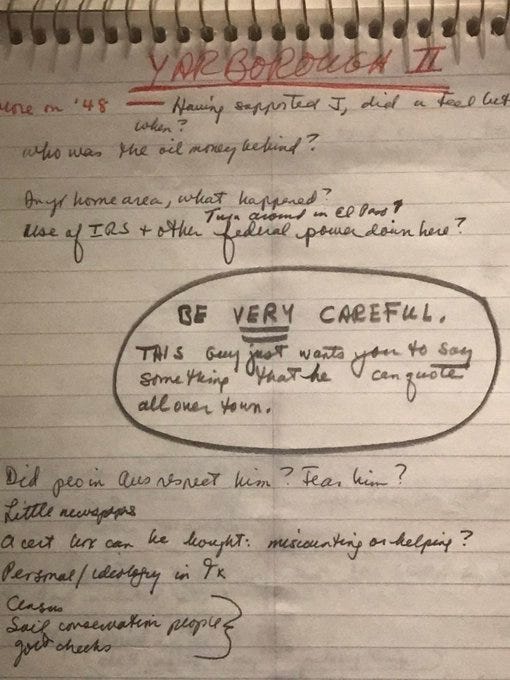 YARBOROUGH II
More on '48 — Having supported J, did u feel bet
when?
who was the oil money behind?
In yr home area, what happened?
Turn around in El Paso?
Use of IRS + other federal power down here?
BE VERY CAREFUL.
THIS Guy just wants you to say
something that he can quote
all over town.
Did peo in Aus respect him? Fear him?
Little newspprs
A cert can be bought: miscounting or helping?
Personal/ideology in Tx
Census
Soil conservation people
govt checks